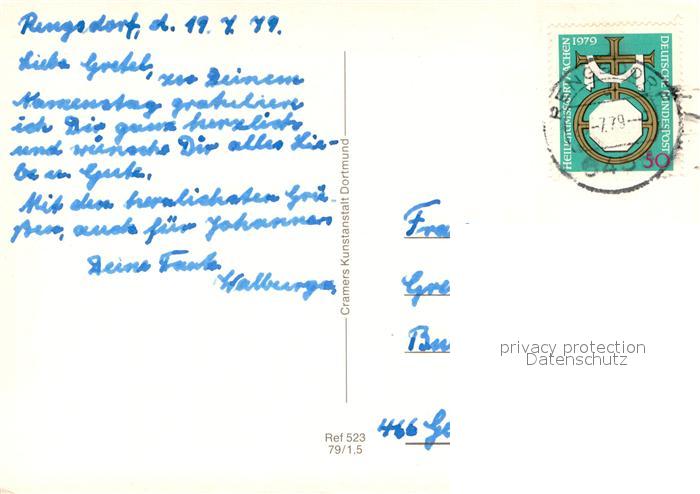 Rengsdorf, d. 19. 7. 79.
Liebe Gretel,
zu Deinem
Namenstag gratuliere
ich Dir ganz herzlich
und wünsche Dir alles Lie-
be u. Gute.
Mit den herzlichsten Grü-
ßen, auch für Johannes
Deine Tante
Walburga.
Cramers Kunstanstalt Dortmund
Ref 523
79/1,5
HEILIGTUMSFAHRT AACHEN 1979
DEUTSCHE BUNDESPOST
50
7.79
Fra
Gre
Bu
466 Ge
privacy protection
Datenschutz